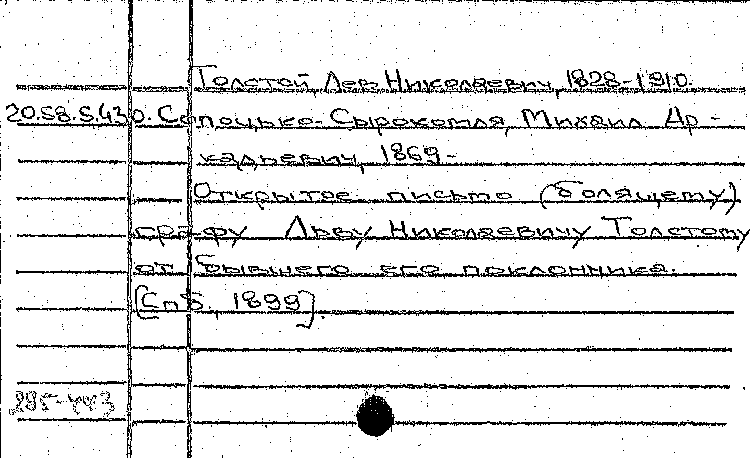 Толстой Лев Николаевич, 1828-1910.
20.58.5.430. Сапоцько-Сырокомля, Михаил Ар-
кадьевич, 1869-
Открытое письмо (болящему)
графу Льву Николаевичу Толстому
от бывшего его поклонника.
[Спб., 1899].
285-443